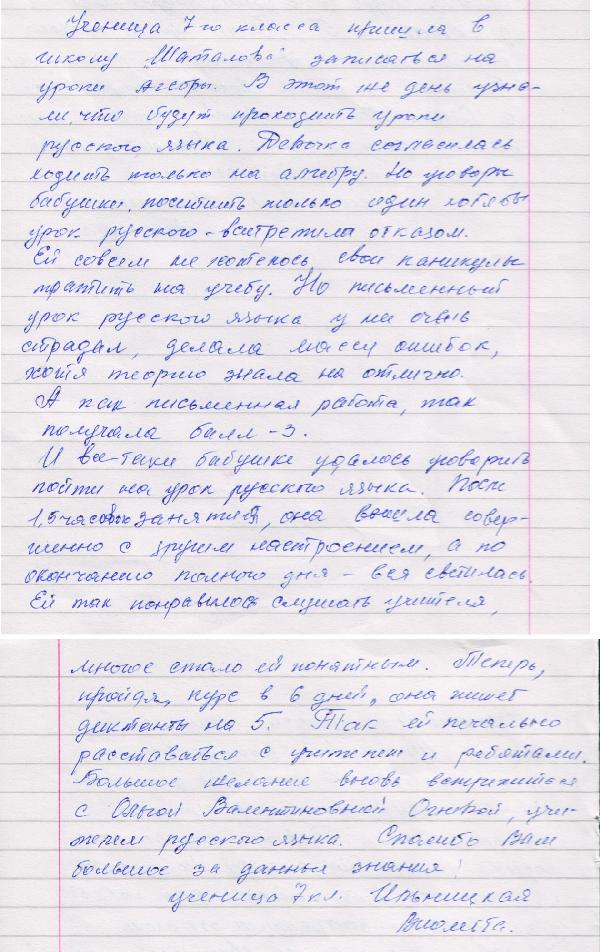 Ученица 7-го класса пришла в
школу Шаталова записаться на
уроки алгебры. В этот же день узна-
ли, что будут проходить уроки
русского языка. Девочка согласилась
ходить только на алгебру. На уговоры
бабушки, посетить только один хотя бы
урок русского - встретили отказом.
Ей совсем не хотелось, свои каникулы
тратить на учебу. Но письменный
урок русского языка у неё очень
страдал, делала массу ошибок,
хотя теорию знала на отлично.
А как письменная работа, так
получала балл - 3.
И все-таки бабушке удалось уговорить
пойти на урок русского языка. После
1,5 часового занятия, она вышла совер-
шенно с другим настроением, а по
окончанию полного дня - вся светилась.
Ей так понравилось слушать учителя,
многое стало ей понятным. Теперь,
пройдя, курс в 6 дней, она пишет
диктанты на 5. Так ей печально
расставаться с учителем и ребятами.
Большое желание вновь встретиться
с Ольгой Валентиновной, учи-
телем русского языка. Спасибо Вам
большое за данные знания!
ученица 7 кл. Ильницкая
Виолетта.